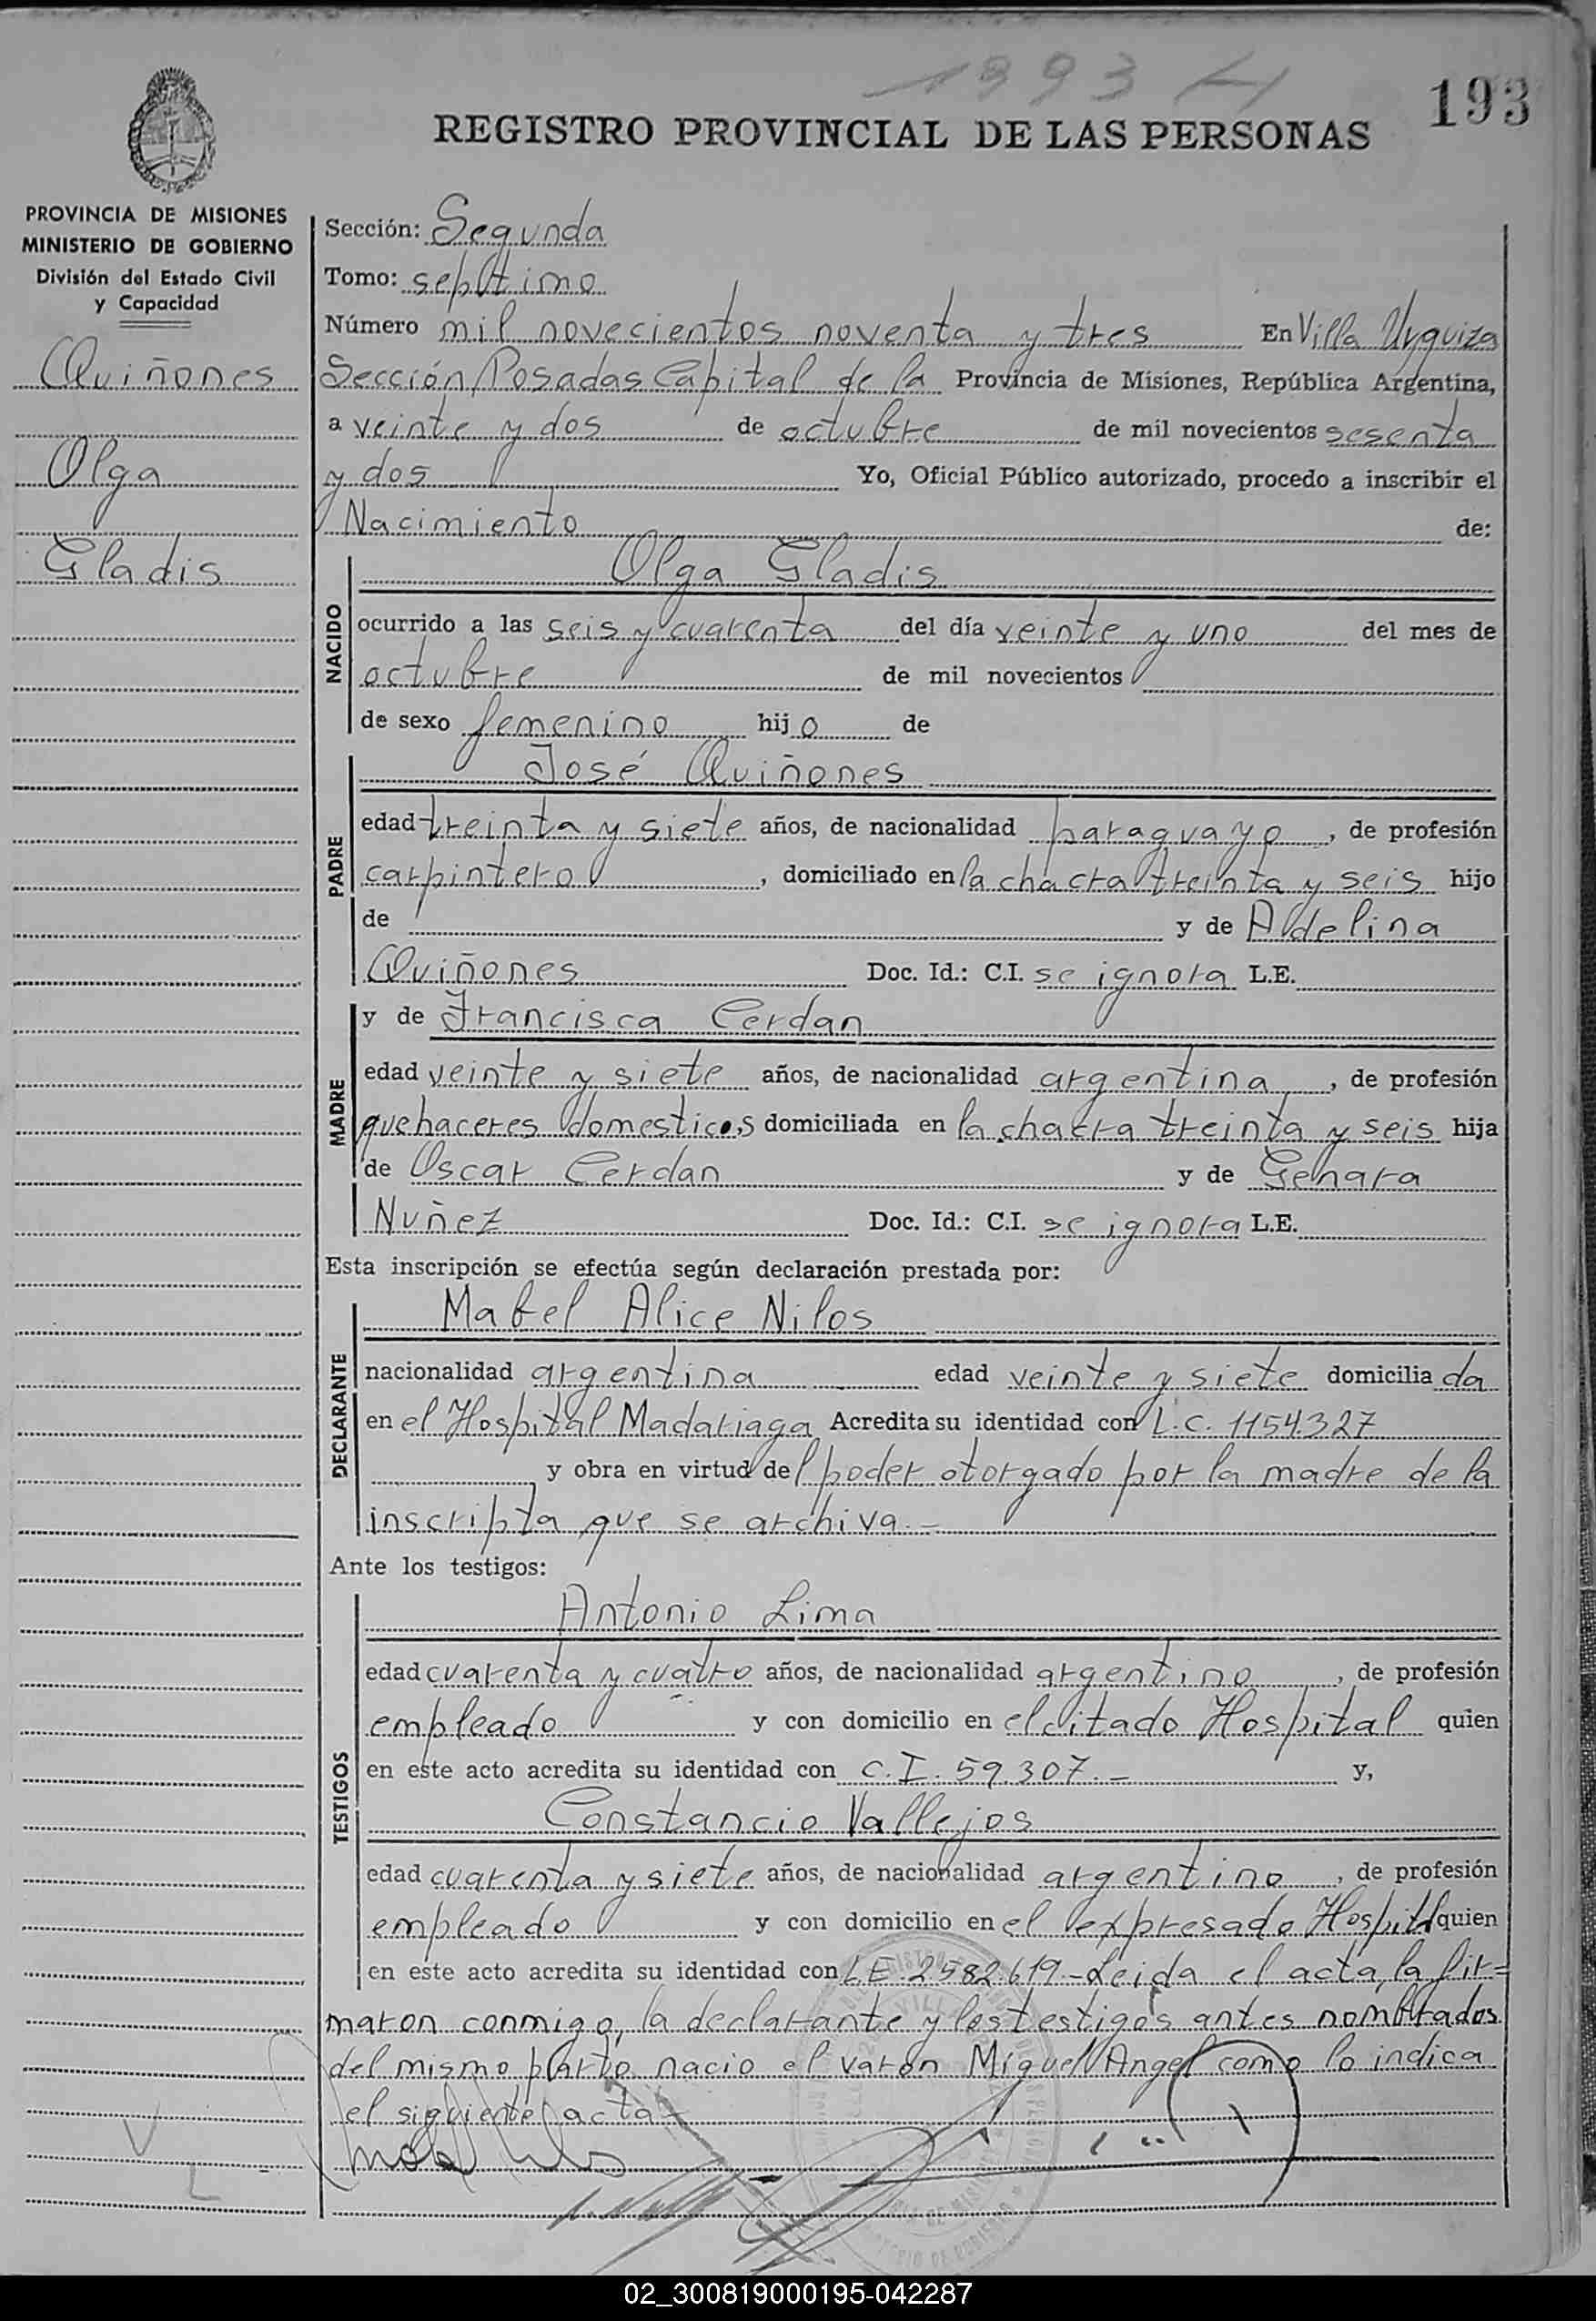 1993 H
193
REGISTRO PROVINCIAL DE LAS PERSONAS
PROVINCIA DE MISIONES
MINISTERIO DE GOBIERNO
División del Estado Civil
y Capacidad
Quiñones
Olga
Gladis
Sección: Segunda
Tomo: septimo
Número mil novecientos noventa y tres En Villa Urquiza
Sección Posadas Capital de la Provincia de Misiones, República Argentina,
a veinte y dos de octubre de mil novecientos sesenta
y dos Yo, Oficial Público autorizado, procedo a inscribir el
Nacimiento de:
NACIDO
Olga Gladis
ocurrido a las seis y cuarenta del día veinte y uno del mes de
octubre de mil novecientos
de sexo femenino hijo de
PADRE
José Quiñones
edad treinta y siete años, de nacionalidad paraguayo, de profesión
carpintero, domiciliado en la chacra treinta y seis hijo
de y de Aldelina
Quiñones Doc. Id.: C.I. se ignora L.E.
MADRE
y de Francisca Cerdan
edad veinte y siete años, de nacionalidad argentina, de profesión
quehaceres domesticos domiciliada en la chacra treinta y seis hija
de Oscar Cerdan y de Genara
Nuñez Doc. Id.: C.I. se ignora L.E.
Esta inscripción se efectúa según declaración prestada por:
DECLARANTE
Mabel Alice Nilos
nacionalidad argentina edad veinte y siete domiciliada
en el Hospital Madariaga Acredita su identidad con L.C. 1154.327
y obra en virtud del poder otorgado por la madre de la
inscripta que se archiva.-
Ante los testigos:
TESTIGOS
Antonio Lima
edad cuarenta y cuatro años, de nacionalidad argentino, de profesión
empleado y con domicilio en el citado Hospital quien
en este acto acredita su identidad con C.I. 59.307.- y,
Constancio Vallejos
edad cuarenta y siete años, de nacionalidad argentino, de profesión
empleado y con domicilio en el expresado Hospital quien
en este acto acredita su identidad con L.E. 2582.619.-Leida el acta, la fir=
maron conmigo, la declarante y los testigos antes nombrados
del mismo parto nacio el varon Miguel Angel como lo indica
el siguiente acta-
02_300819000195-042287